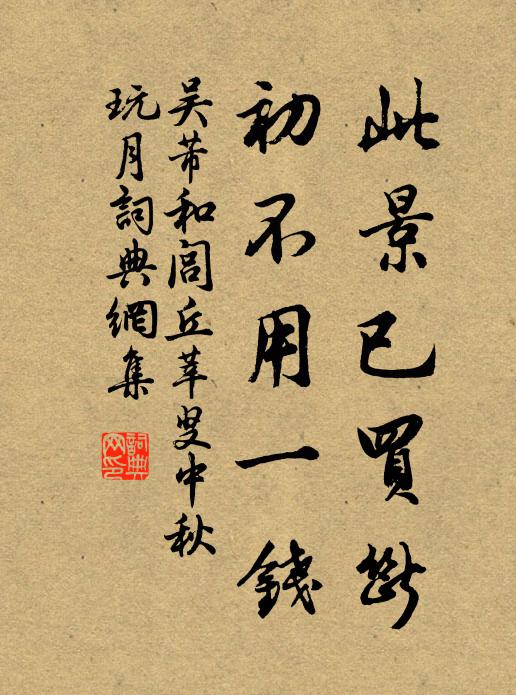 此景已買斷
初不用一錢
吳芾和閭丘莘叟中秋
玩月詞典網集
詞典
网印